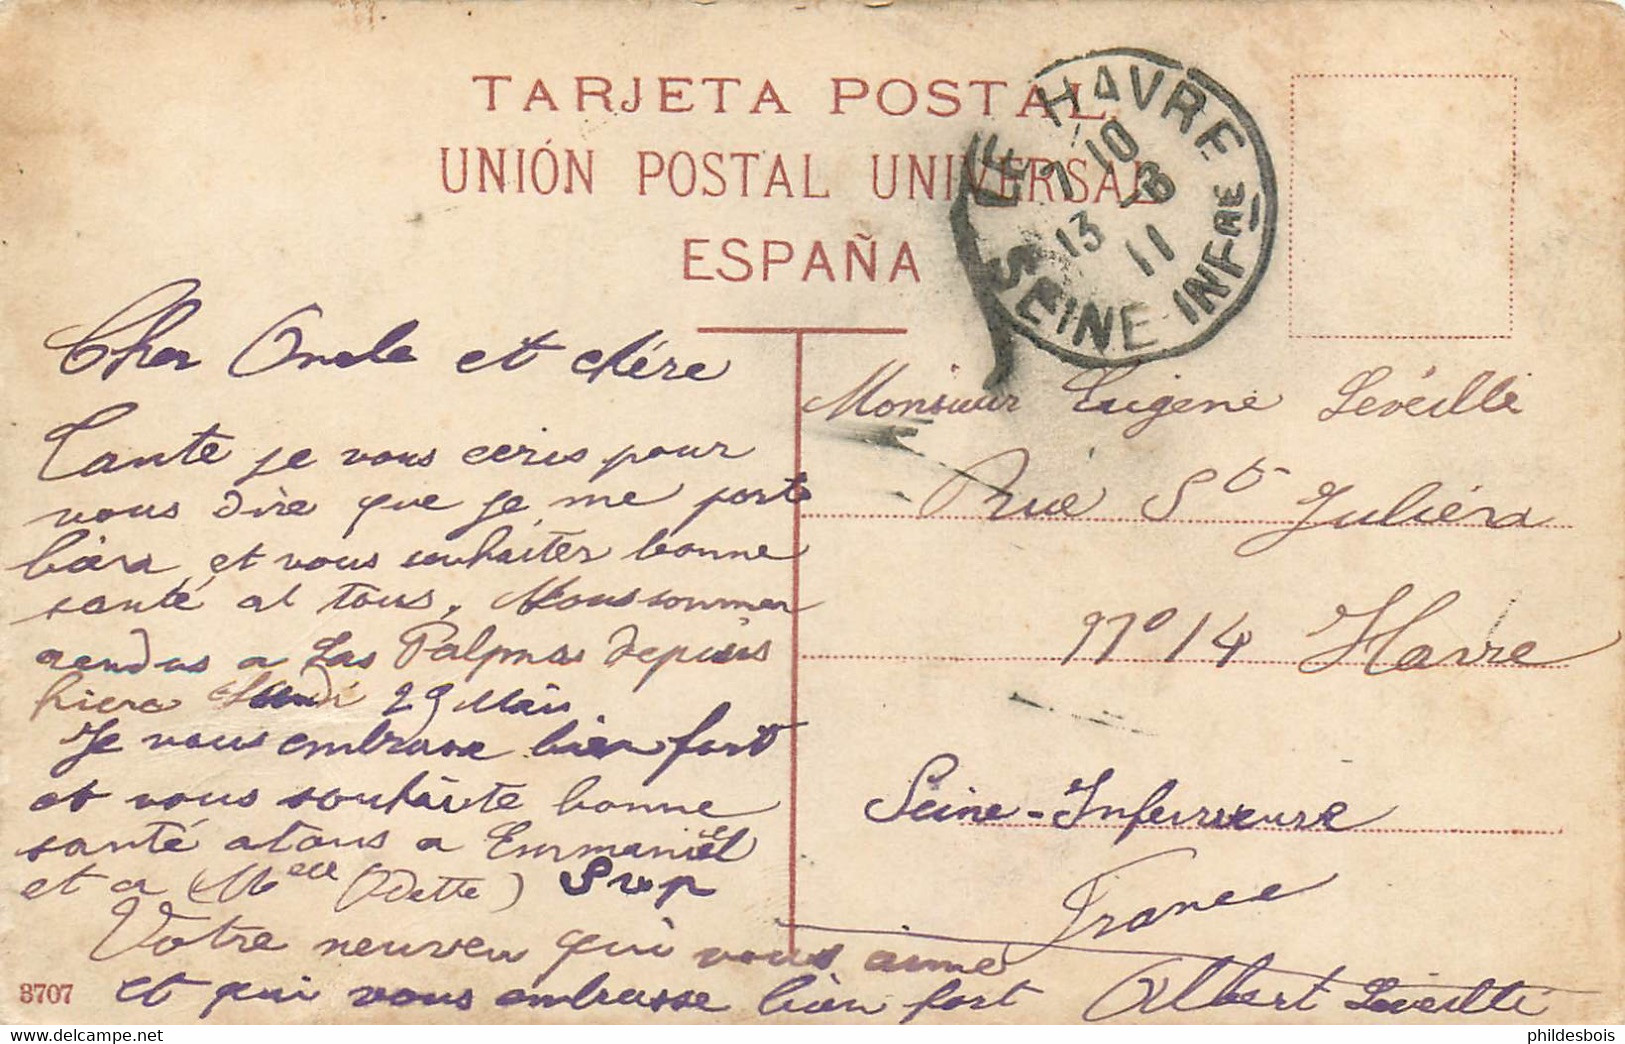 TARJETA POSTAL.
UNIÓN POSTAL UNIVERSAL
ESPAÑA
LE HAVRE
7 10
13 -6
11
SEINE-INFRE
Cher Oncle et chére
Tante je vous ecris pour
vous dire que je me porte
bien, et vous souhaiter bonne
santé at tous. Nous sommes
rendus a Las Palmas depuis
hiera Lundi 29 Mai
Je vous embrasse bien fort
et vous souhaite bonne
santé a tous a Emmaniël
et a (Melle Odette) Svp
Votre neuveu qui vous aime
et qui vous embrasse bien fort Albert Leveillé
Monsieur Eugene Léveillé
Rue St Julien
N° 14 Havre
Seine-Inferieure
France
3707
phildesbois